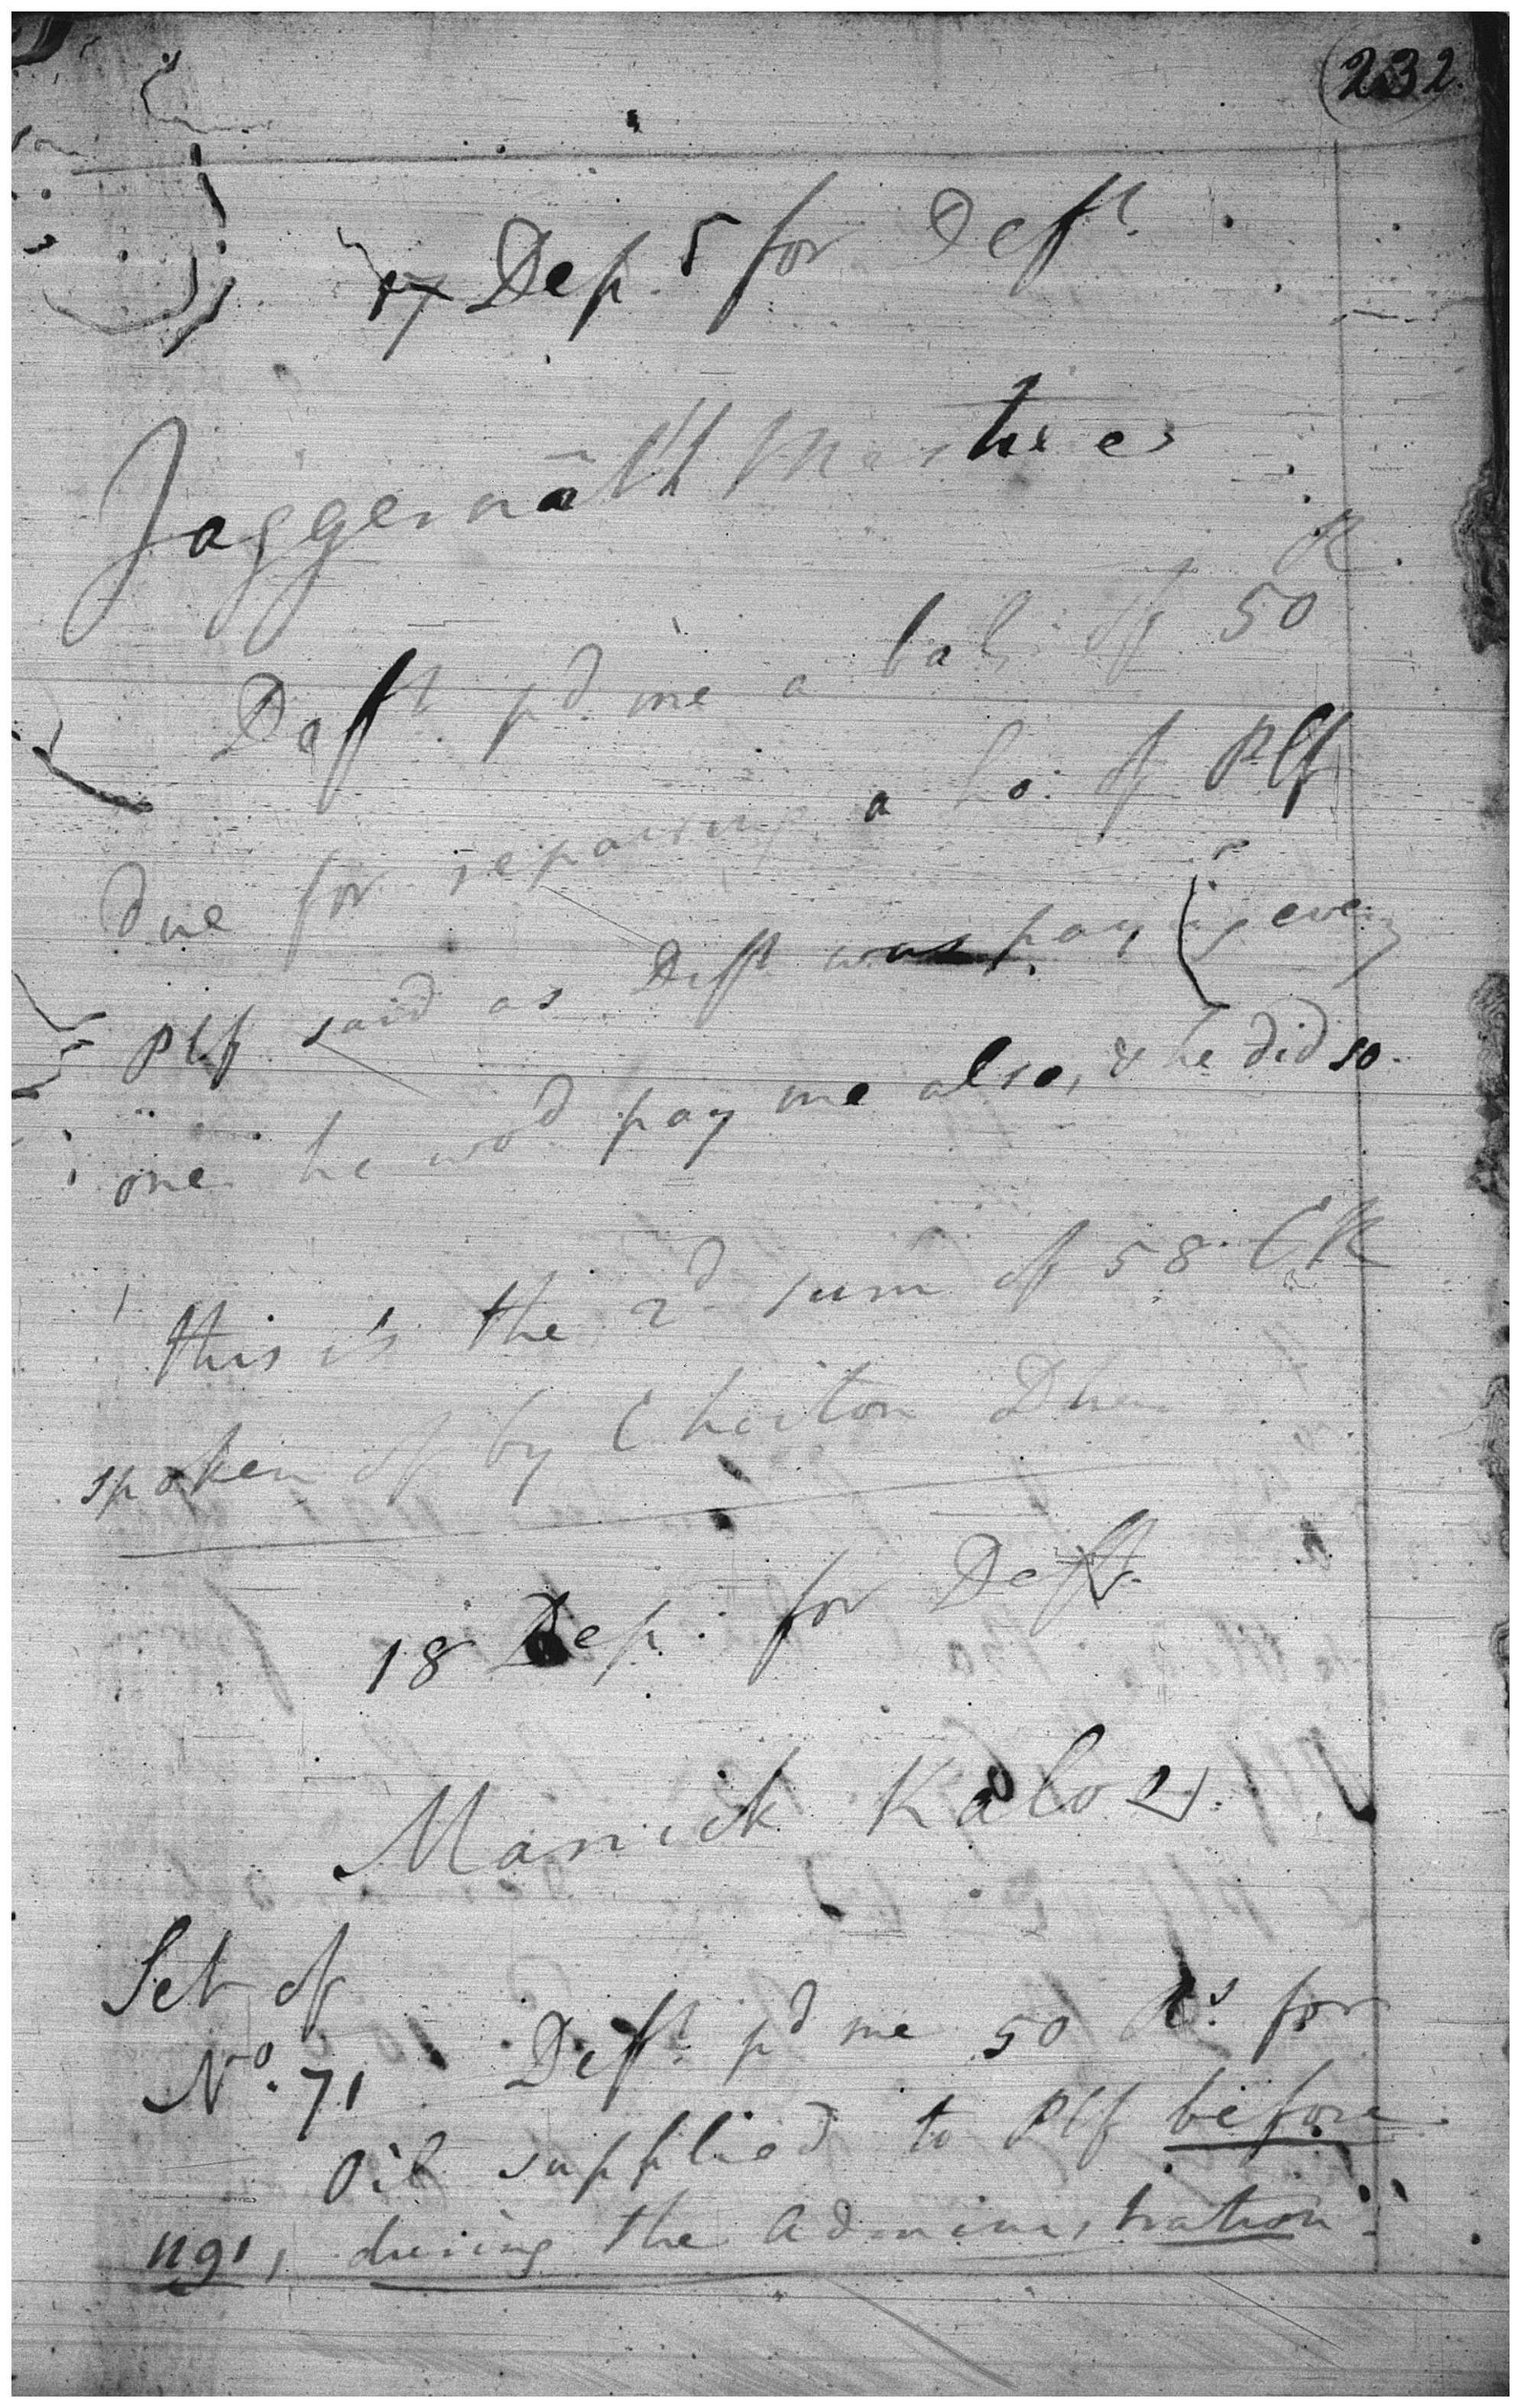 (232.
17 Dep. 5 for Deft.
Jaggernāth
Deft. pd. me a bal: of 50 R.
due for repairing a ho: of Plf
Plf said as Deft was paying every
one he wod pay me also, & he did so.
this is the 2d sum of 58. CR
spoken of by Choiton
18 Dep: for Deft.
Manick
Set of
No. 71 Deft. pd me 50 Rs. for
oil supplied to Plf before
1191, during the Administration.